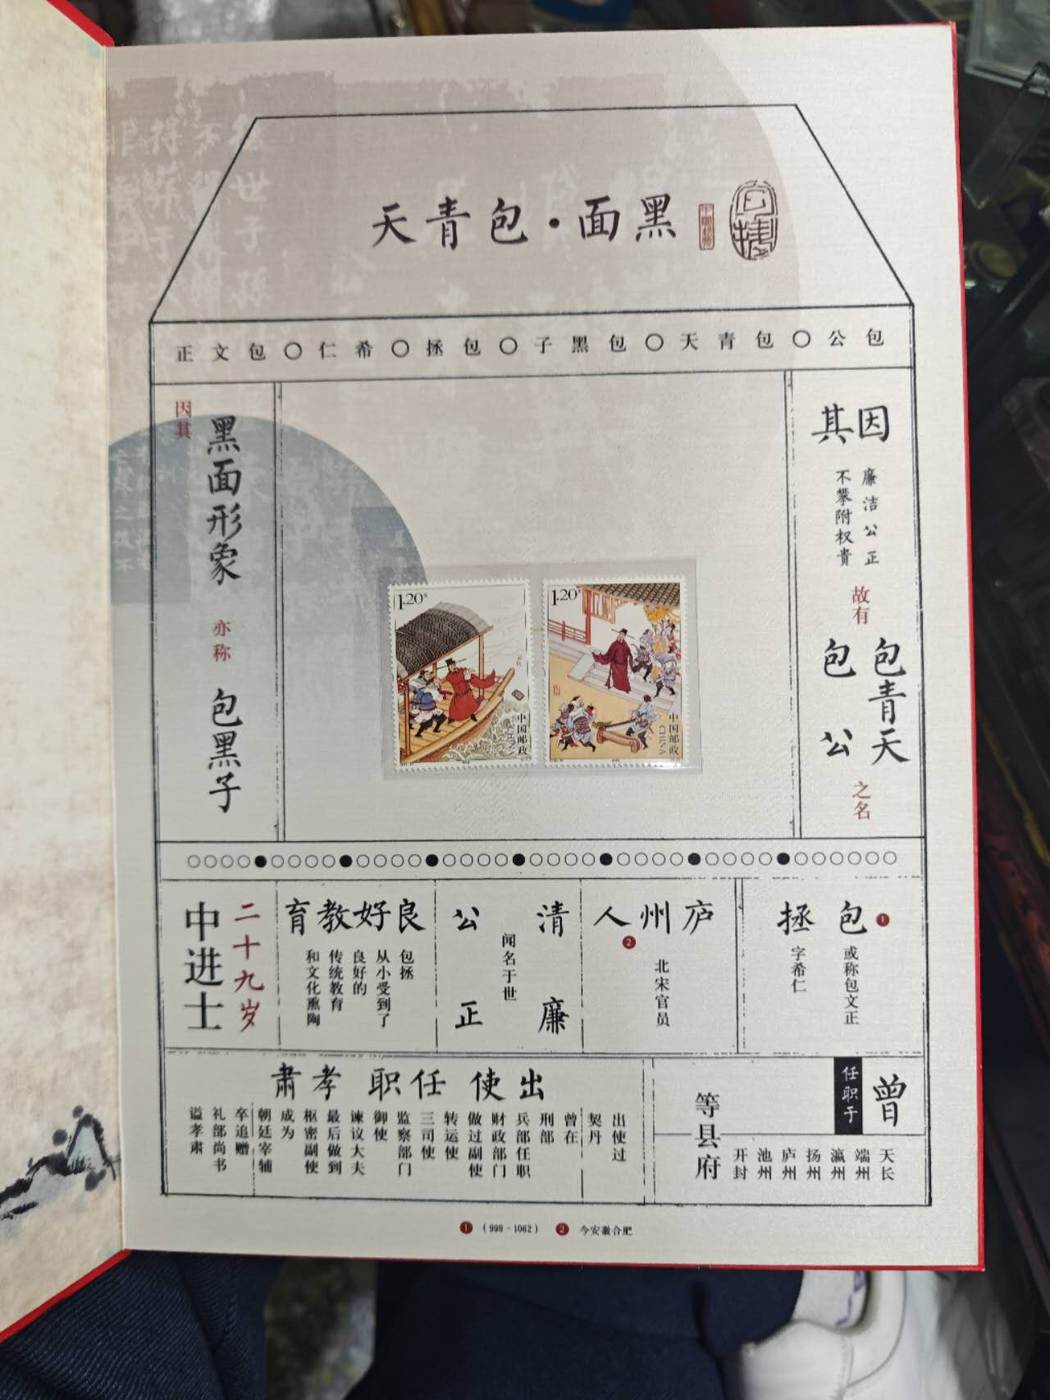 黑面·包青天
包公〇包青天〇包黑子〇包拯〇希仁〇包文正
因其
廉洁公正
不攀附权贵
故有
包青天
包公
之名
因其
黑面形象
亦称
包黑子
1.20元
中国邮政
CHINA
1.20元
中国邮政
CHINA
包拯
1
或称包文正
字希仁
庐州人
2
北宋官员
清廉
公正
闻名于世
良好教育
包拯
从小受到了
良好的
传统教育
和文化熏陶
二十九岁
中进士
曾
任职于
天长
端州
瀛州
扬州
庐州
池州
开封
等县府
出使 任职 孝肃
出使过
契丹
曾在
刑部
兵部任职
财政部门
做过副使
转运使
三司使
监察部门
御使
谏议大夫
最后做到
枢密副使
成为
朝廷宰辅
卒追赠
礼部尚书
谥孝肃
1 (999-1062) 2 今安徽合肥